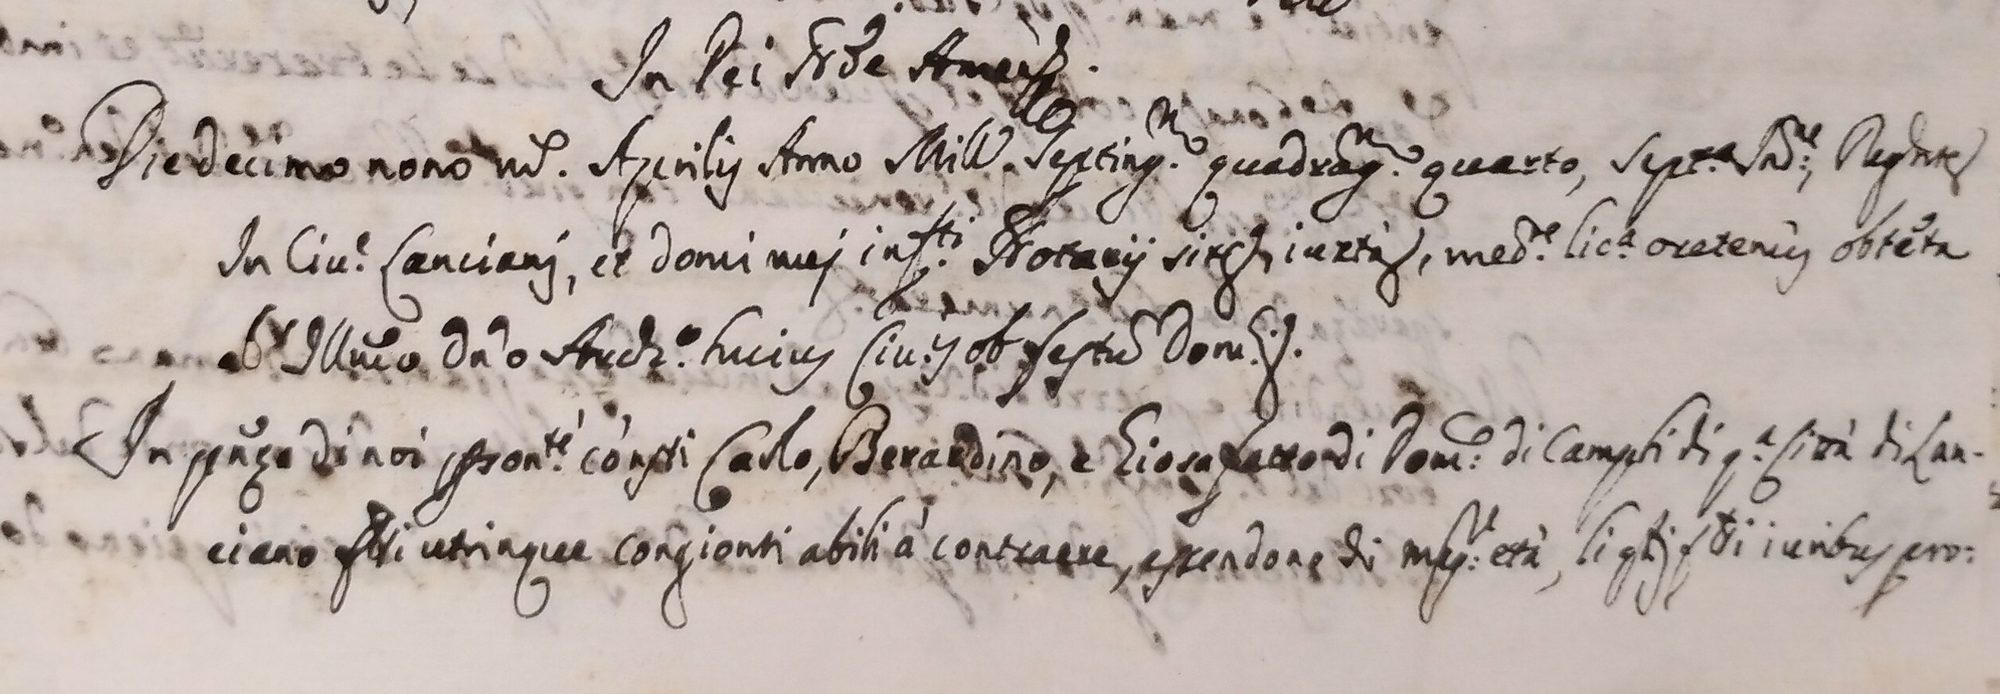 In Dei Nõe Amen.
Die decimo nono ms. Aprilis Anno Mill. Septing. quadrag. quarto, sept.a Ind.e, Regnte
In Civ.e Lanciani, et domi mei inf.tti Notarij sita, iuxta, med.te lic.a oretenus obtẽta
ab Illmo Dno And.a Civ.s ob festũ Dom.
In pñza di noi psonte consti Carlo, Berardino, e Giosafatto di Dom.co di Campli di q.a Città di Lan-
ciano fratri utrinque congionti abili à contraere, essendono di mag.e età, li qli fratri iuribus pro: